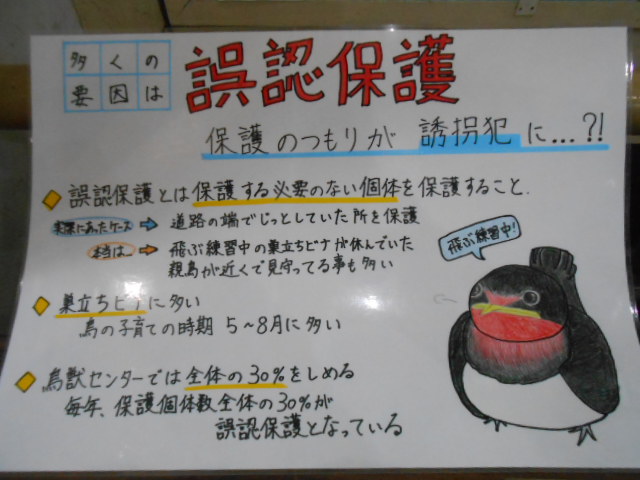 多くの
要因は
誤認保護
保護のつもりが 誘拐犯に...?!
誤認保護とは保護する必要のない個体を保護すること.
実際にあったケース ➡ 道路の端でじっとしていた所を保護
本当は… ➡ 飛ぶ練習中の巣立ちビナが休んでいた
親鳥が近くで見守ってる事も多い
飛ぶ練習中!
巣立ちビナに多い
鳥の子育ての時期 5~8月に多い
鳥獣センターでは全体の30%をしめる
毎年、保護個体数全体の30%が
誤認保護となっている